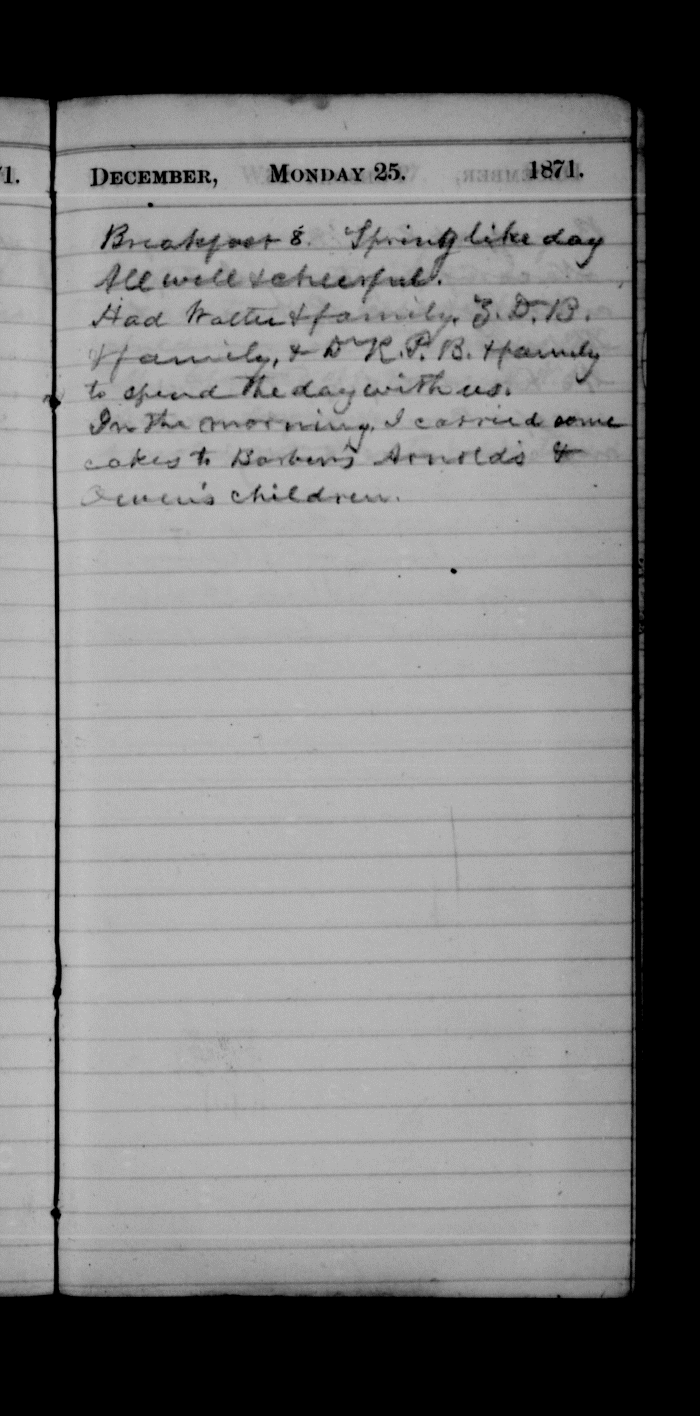 1.
DECEMBER, MONDAY 25. 1871.
Breakfast 8. Springlike day
All well & cheerful.
Had Walter & family, Z. D. B.
& family, & Dr K. P. B. & family
to spend the day with us.
In the morning, I carried some
cakes to Barben's Arnold's &
Owen's children.